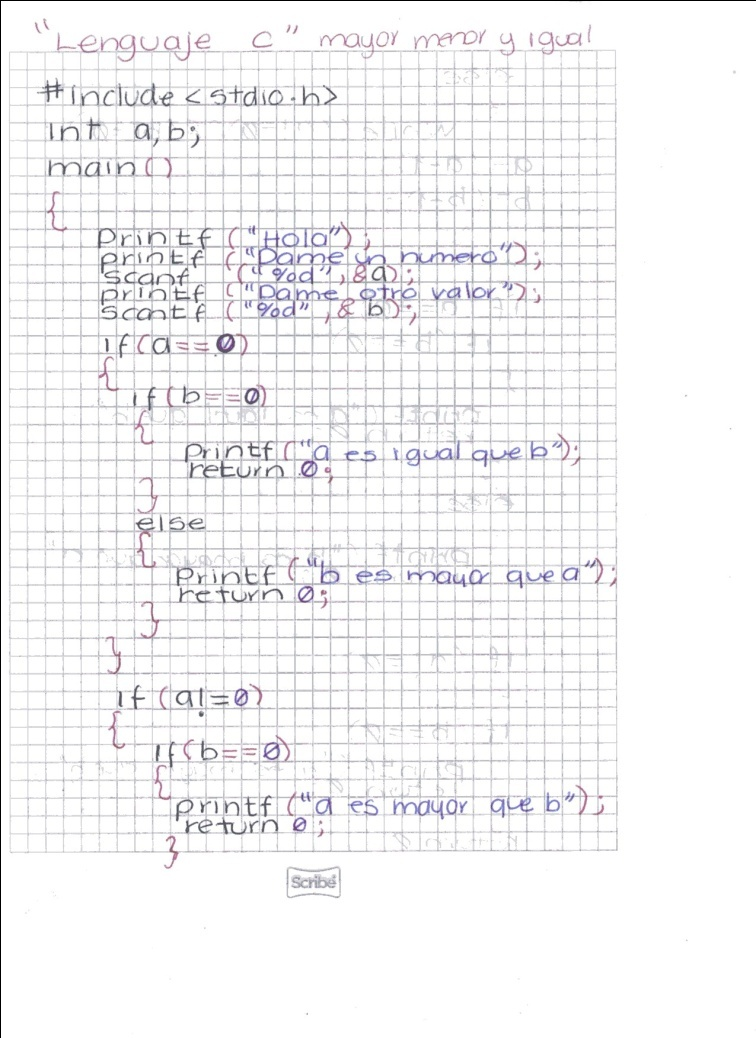 "Lenguaje c" mayor menor y igual
#include <stdio.h>
int a, b;
main()
{
printf ("Hola");
printf ("Dame un numero");
scanf ("%d", &a);
printf ("Dame otro valor");
scanf ("%d", & b);
if (a==0)
{
if (b==0)
{
printf ("a es igual que b");
return 0;
}
else
{
printf ("b es mayor que a");
return 0;
}
}
if (a!=0)
{
if (b==0)
{
printf ("a es mayor que b");
return 0;
}
Scribe